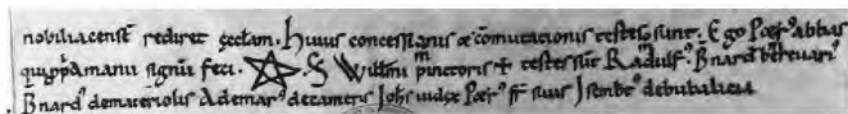 nobiliacensē rediret ęccłam. Huius concessionis & cōmutacionis testes sunt. Ego Pet⁹ abbas
manu signū feci. S Willmi pinctoris + testes sūt Radulf⁹. Bnard⁹
Bnard⁹ demaceriolis Ademar⁹ decameris Johs iudex Pet⁹ fr̄ suus Isembt⁹ debubalicia